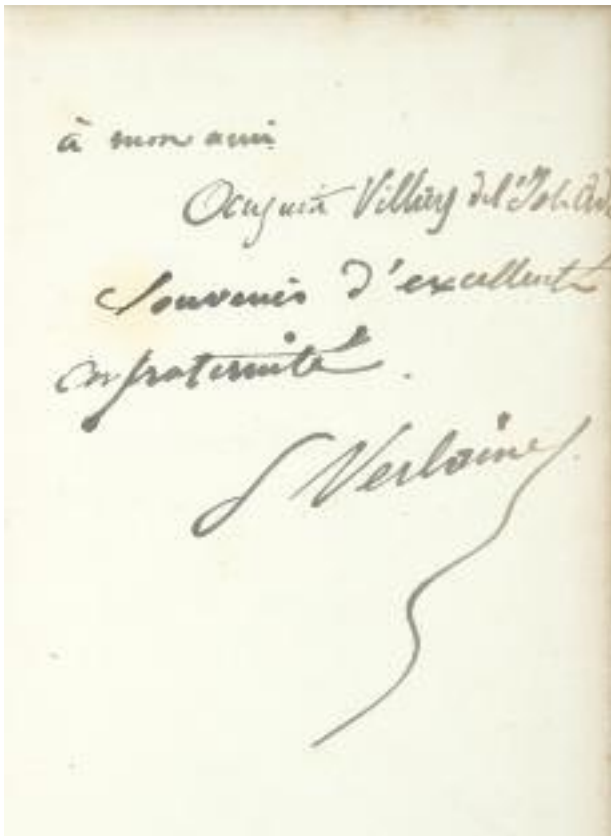 à mon ami
Auguste Villiers de l'Isle Ad
Souvenir d'excellente
confraternité.
P Verlaine